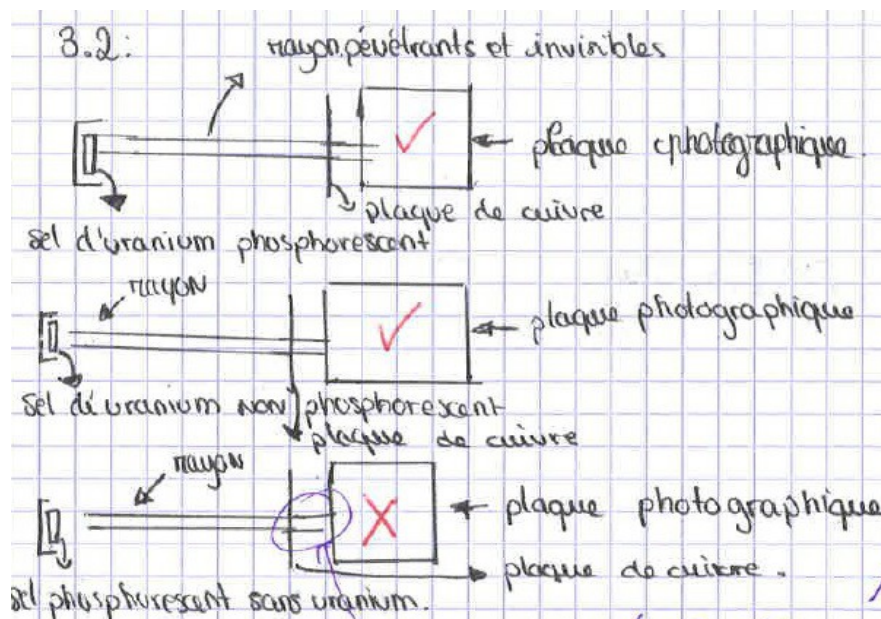 3.2:
rayon pénétrants et invisibles
plaque photographique.
plaque de cuivre
sel d'uranium phosphorescent
rayon
plaque photographique
sel d'uranium non phosphorescent
plaque de cuivre
rayon
plaque photographique
plaque de cuivre.
sel phosphorescent sans uranium.